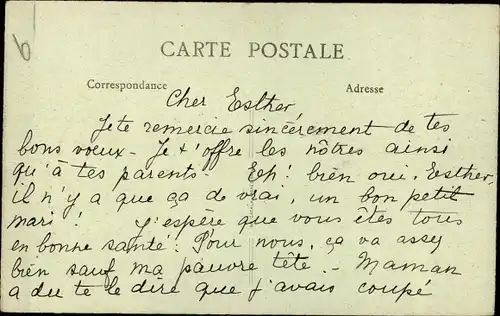 6
CARTE POSTALE
Correspondance
Adresse
Cher Esther
Je te remercie sincèrement de tes
bons voeux - Je t'offre les nôtres ainsi
qu'à tes parents - Eh! bien oui, Esther,
il n'y a que ça de vrai, un bon petit
mari! J'espère que vous êtes tous
en bonne santé! Pour nous, ça va assez
bien sauf ma pauvre tête. - Maman
a du te le dire que j'avais coupé